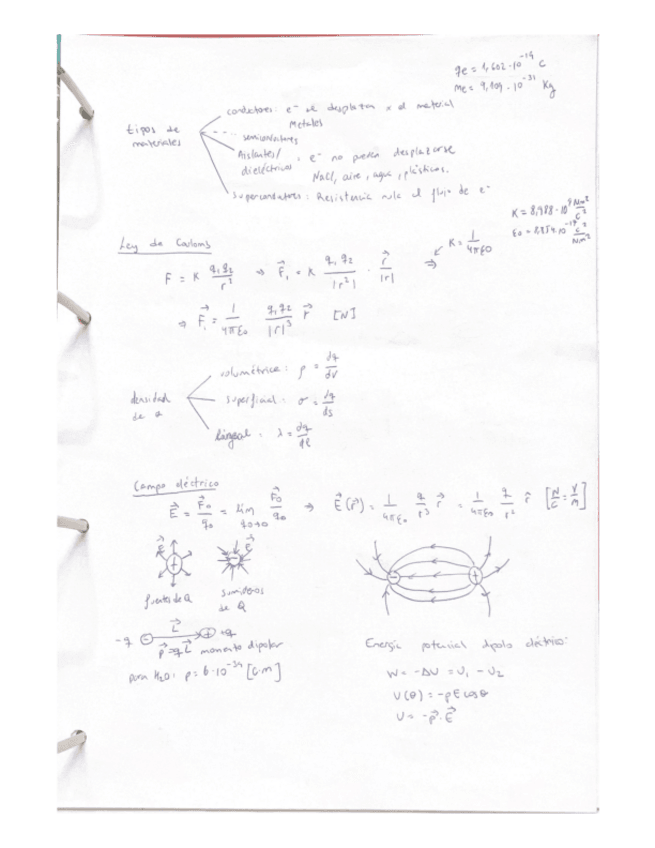 qe = 1,602·10^-19 C
me = 9,109·10^-31 Kg
tipos de materiales
conductores: e⁻ se desplazan x el material
Metales
semiconductores
Aislantes/
dieléctricos: e⁻ no pueden desplazarse
NaCl, aire, agua, plásticos.
superconductores: Resistencia nula al flujo de e⁻
K = 8,988·10^9 Nm²/C²
ε0 = 8,854·10^-12 C²/Nm²
Ley de Coulomb
F = K q₁q₂/r² ⇒ F⃗₁ = K q₁q₂/|r²| · r⃗/|r| ⇒ K = 1/4πε0
⇒ F⃗₁ = 1/4πε0 q₁q₂/|r|³ r⃗ [N]
densidad de Q
volumétrica: ρ = dq/dV
superficial: σ = dq/ds
lineal: λ = dq/dl
Campo eléctrico
E⃗ = F⃗0/q0 = lim q0→0 F⃗0/q0 ⇒ E⃗(r⃗) = 1/4πε0 q/r³ r⃗ = 1/4πε0 q/r² r̂ [N/C = V/m]
E⃗ + − E⃗
fuentes de Q
sumideros de Q
− +
-q − L⃗ + +q
p⃗ = qL⃗ momento dipolar
para H₂O: p = 6·10^-34 [C·m]
Energía potencial dipolo eléctrico:
W = -ΔU = U₁ - U₂
U(θ) = -pE cosθ
U = -p⃗·E⃗